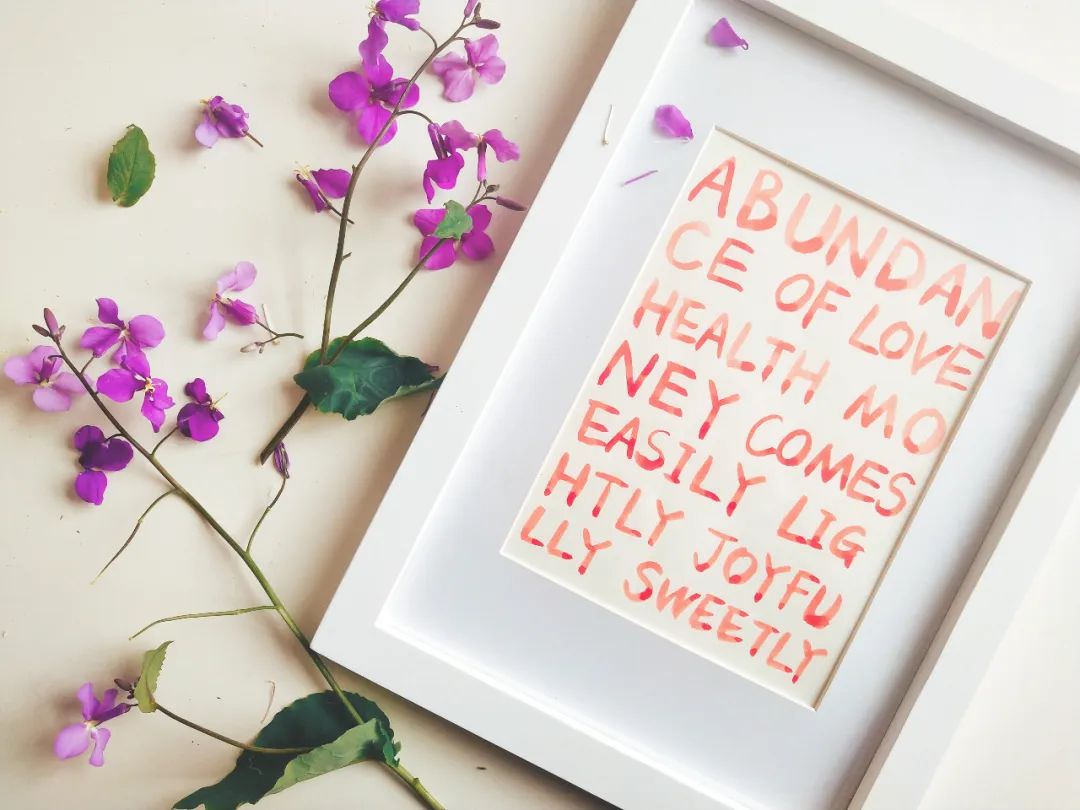 ABUNDAN
CE OF LOVE
HEALTH MO
NEY COMES
EASILY LIG
HTLY JOYFU
LLY SWEETLY